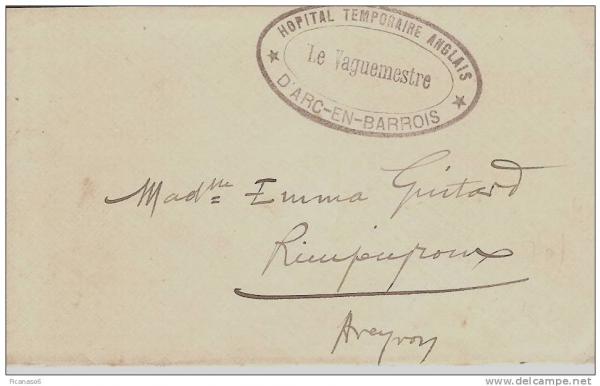 HOPITAL TEMPORAIRE ANGLAIS
Le Vaguemestre
★ D'ARC-EN-BARROIS ★
Madlle Emma Guitard
Rieupeyroux
Aveyron
Picanaso6
delcampe.net